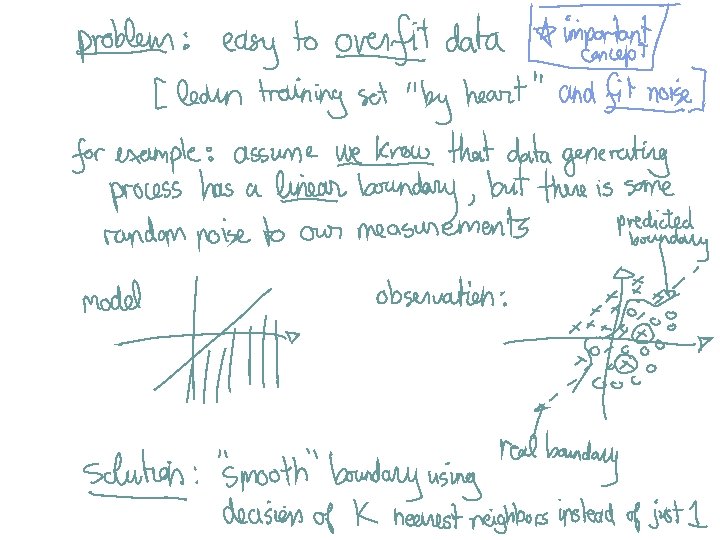 problem: easy to overfit data ☆ important concept
[learn training set "by heart" and fit noise]
for example: assume we know that data generating
process has a linear boundary, but there is some
random noise to our measurements
predicted
boundary
model
observation:
real boundary
solution: "smooth" boundary using
decision of K nearest neighbors instead of just 1